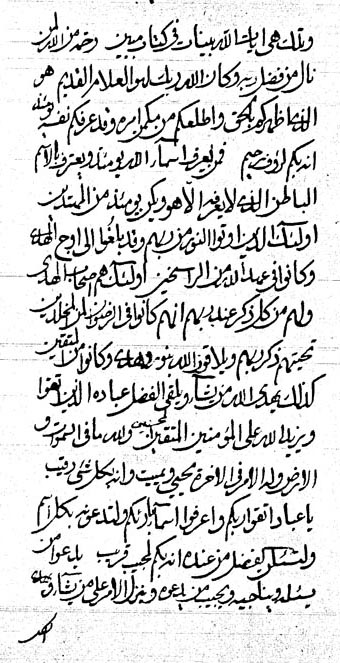 وتلك هي ايات الله بينات في كتاب مبين وحمة من الله لمن
نال من فضل ربه وكان الله ربك لهو العلام القديم هو
الذي اظهركم بالحق واطلعكم من مكمن امره وقد عرفكم نفسه
انه بكم لرؤف رحيم فمن يعرف اسماء الله يومئذ ويعرف بالاسم
الباطن الذي لا يعرفه الا هو يكن يومئذ من المهتدين
اولئك الذين اوتوا النور من ربهم وقد بلغوا الى اوج الهدى
وكانوا في عبد الله من الراسخين اولئك هم اصحاب الهدى
ولهم من كل ذكر عند ربهم انهم كانوا في الرضوان لمن المخلدين
تحيتهم ذكر ربهم ويلاقون الله وكانوا من المتقين
كذلك يهدي الله من يشاء ويلقي الفضل عباده الذين اتقوا
ويزيد الله على المؤمنين المتقين ولله ما في السموات و
الارض وله الامر في الاخرة يحيي ويميت وانه بكل شيء رقيب
يا عباد اتقوا ربكم واعرفوا اسماء ربكم ولتدعونه بكل اسم
ولتسئلن الفضل من عنده انه بكم لمجيب قريب يدعوا من
يسئله ويناجيه ويجيب من يدعوه وينزل الامر على من يشاء